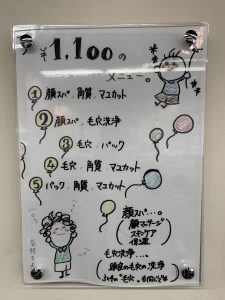 ¥1,100の
メニュー。
① 顔スパ、角質、マユカット
② 顔スパ、毛穴洗浄
③ 毛穴、パック
④ 毛穴、角質、マユカット
⑤ パック、角質、マユカット
顔スパ…。
顔マッサージ
スキンケア
保湿
毛穴洗浄…。
頭皮の毛穴の洗浄